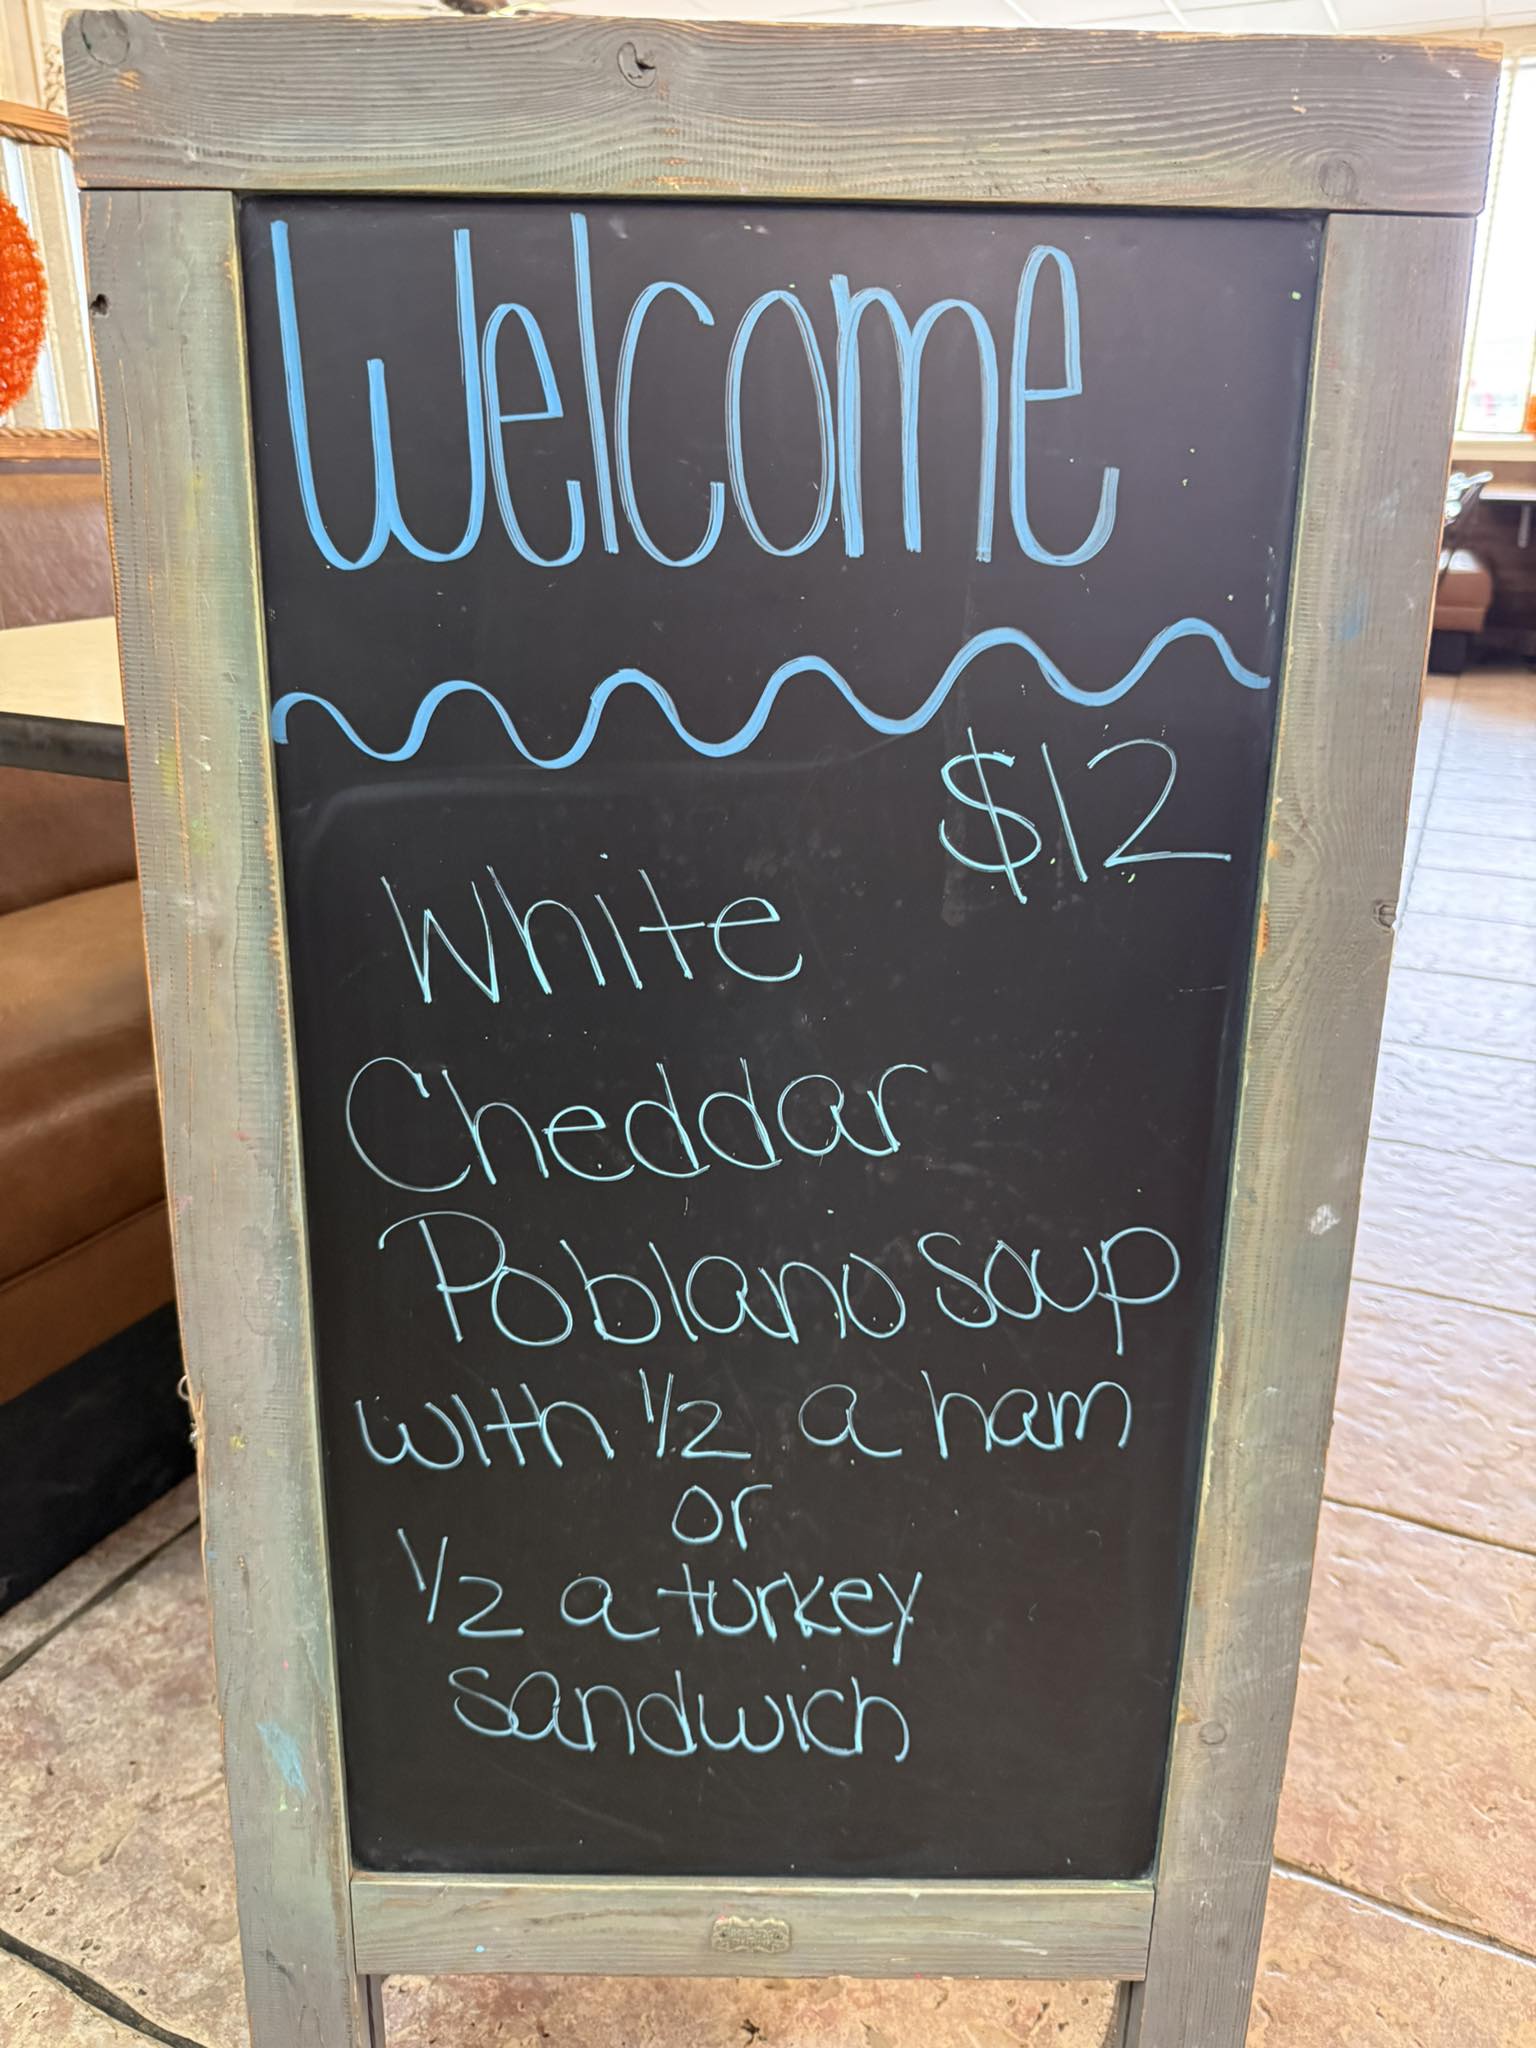 Welcome
$12
White
Cheddar
Poblano Soup
with 1/2 a ham
or
1/2 a turkey
sandwich